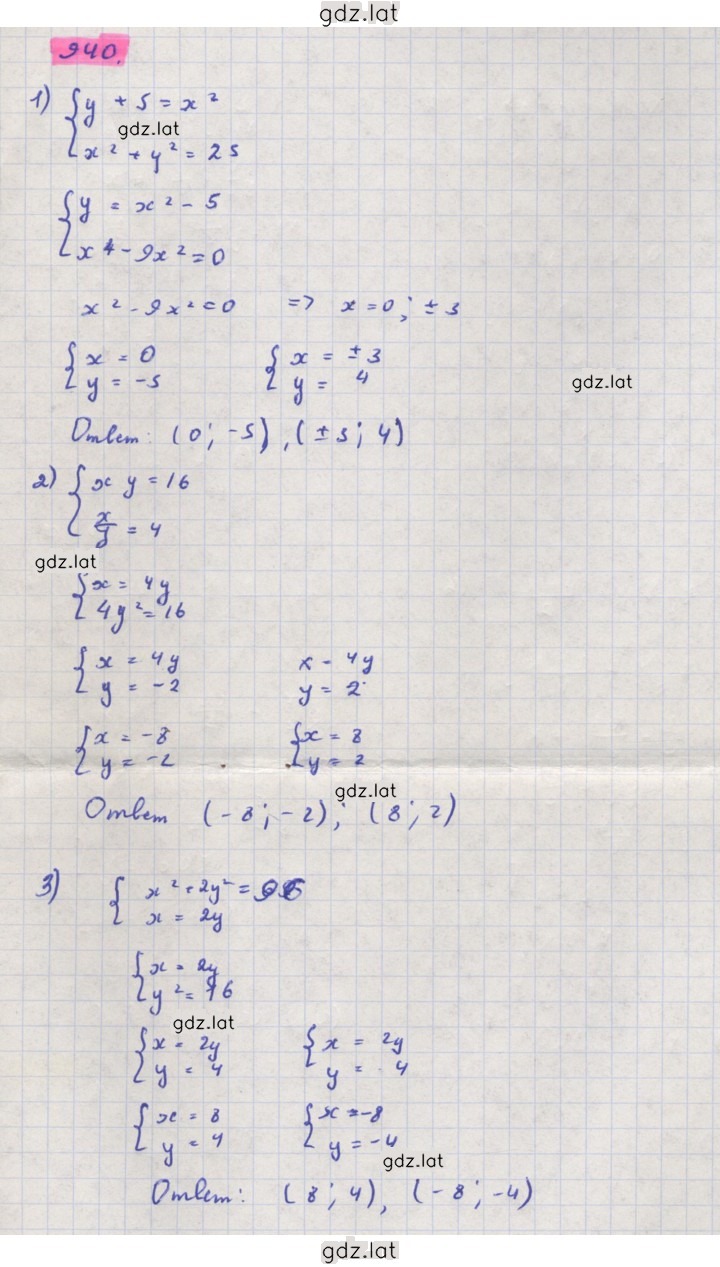 gdz.lat
940.
1) { y + 5 = x²
gdz.lat
x² + y² = 25
{ y = x² - 5
x⁴ - 9x² = 0
x² - 9x² = 0 => x = 0; ± 3
{ x = 0 { x = ± 3
y = -5 y = 4
gdz.lat
Ответ: (0; -5), (± 3; 4)
2) { x y = 16
x/y = 4
gdz.lat
{ x = 4y
4y² = 16
{ x = 4y x - 4y
y = -2 y = 2
{ x = -8 { x = 8
y = -2 y = 2
gdz.lat
Ответ (-8; -2); (8; 2)
3) { x² + 2y² = 96
x = 2y
{ x = 2y
y² = 16
gdz.lat
{ x = 2y { x = 2y
y = 4 y = . 4
{ x = 8 { x = -8
y = 4 y = -4
gdz.lat
Ответ: (8; 4), (-8; -4)
gdz.lat